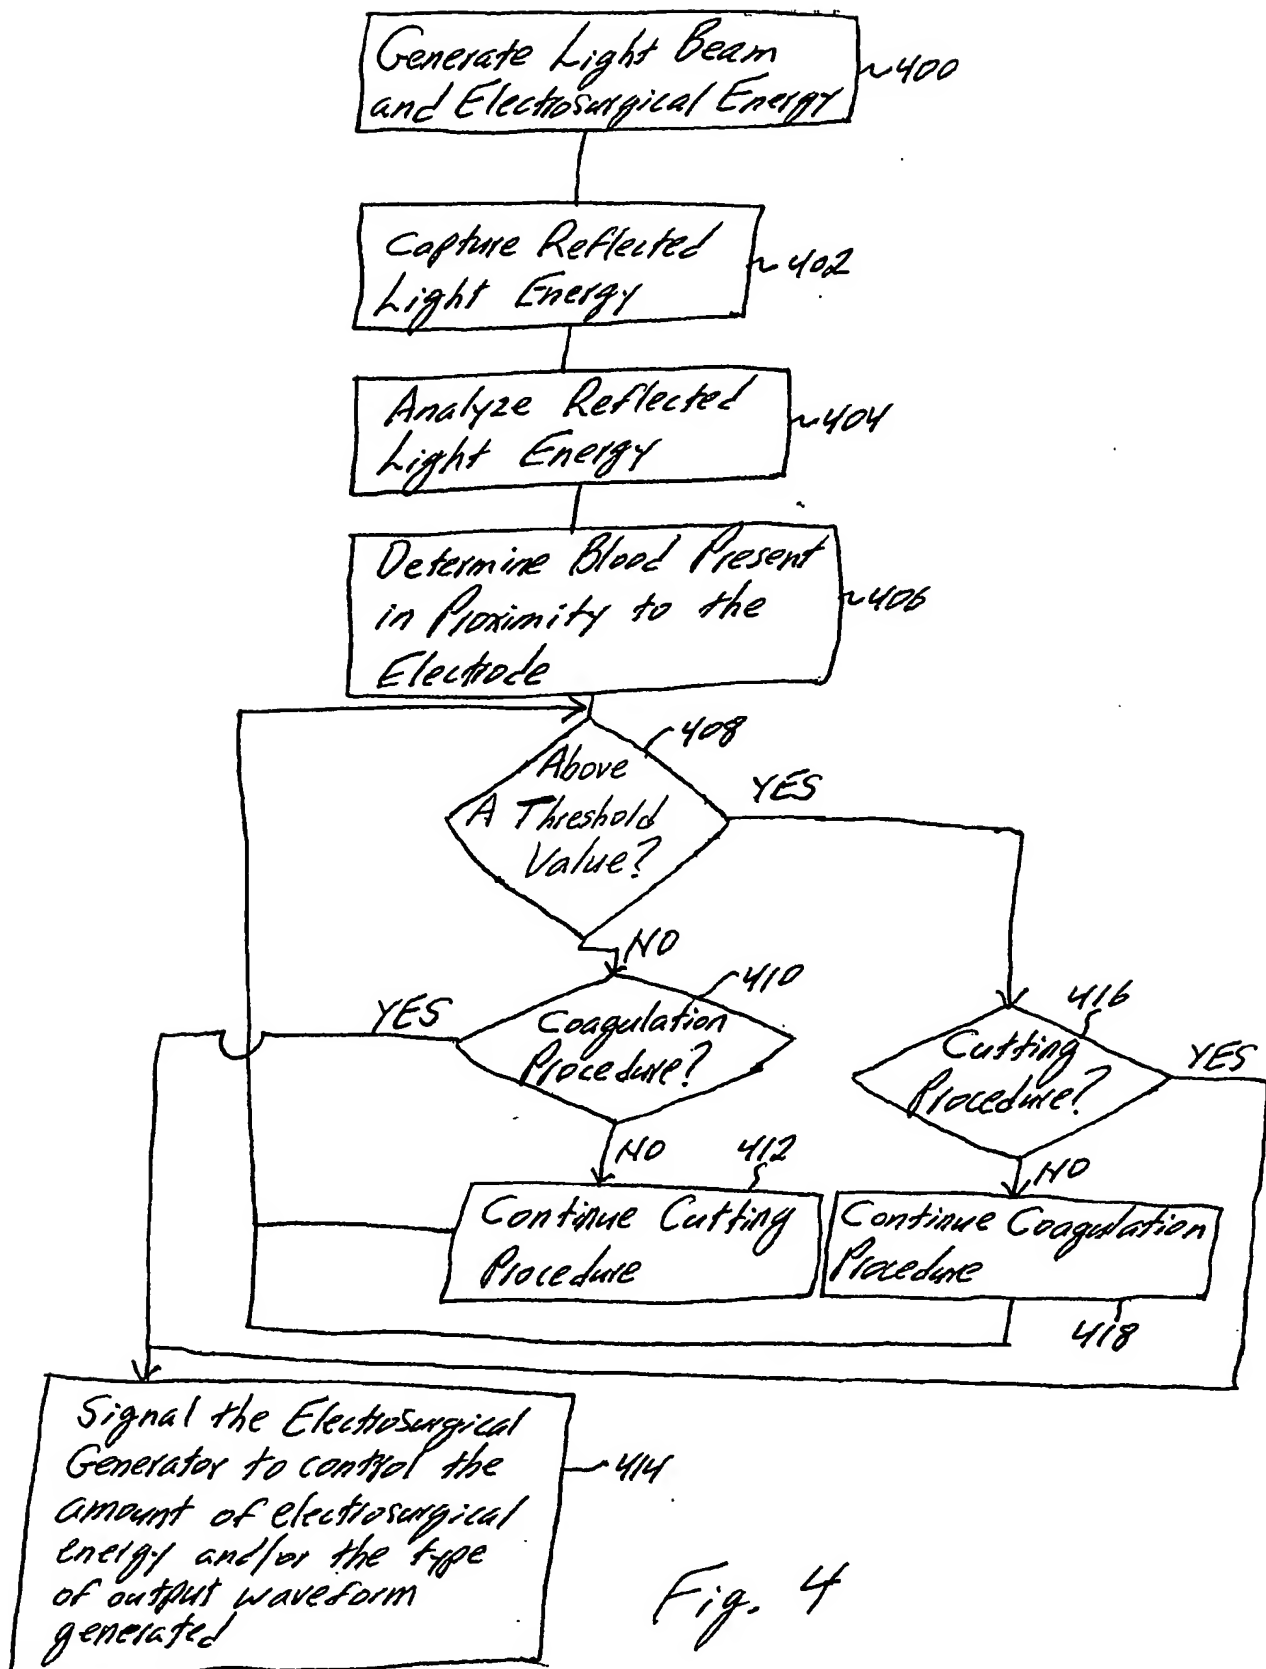 Generate Light Beam
and Electrosurgical Energy
~400
Capture Reflected
Light Energy
~402
Analyze Reflected
Light Energy
~404
Determine Blood Present
in Proximity to the
Electrode
~406
408
Above
A Threshold
Value?
YES
NO
410
Coagulation
Procedure?
YES
NO
416
Cutting
Procedure?
YES
NO
412
Continue Cutting
Procedure
Continue Coagulation
Procedure
418
Signal the Electrosurgical
Generator to control the
amount of electrosurgical
energy and/or the type
of output waveform
generated
414
Fig. 4